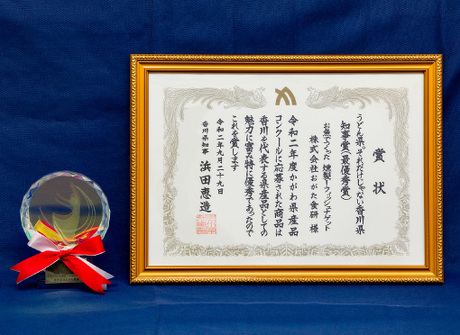 賞状
うどん県。それだけじゃない香川県
知事賞(最優秀賞)
お魚でつくった燻製トーフィッシュナゲット
株式会社おがた食研 様
令和二年度かがわ県産品
コンクールに応募された商品は
香川を代表する県産品としての
魅力に富み特に優秀であったので
これを賞します
令和二年九月二十九日
香川県知事 浜田恵造